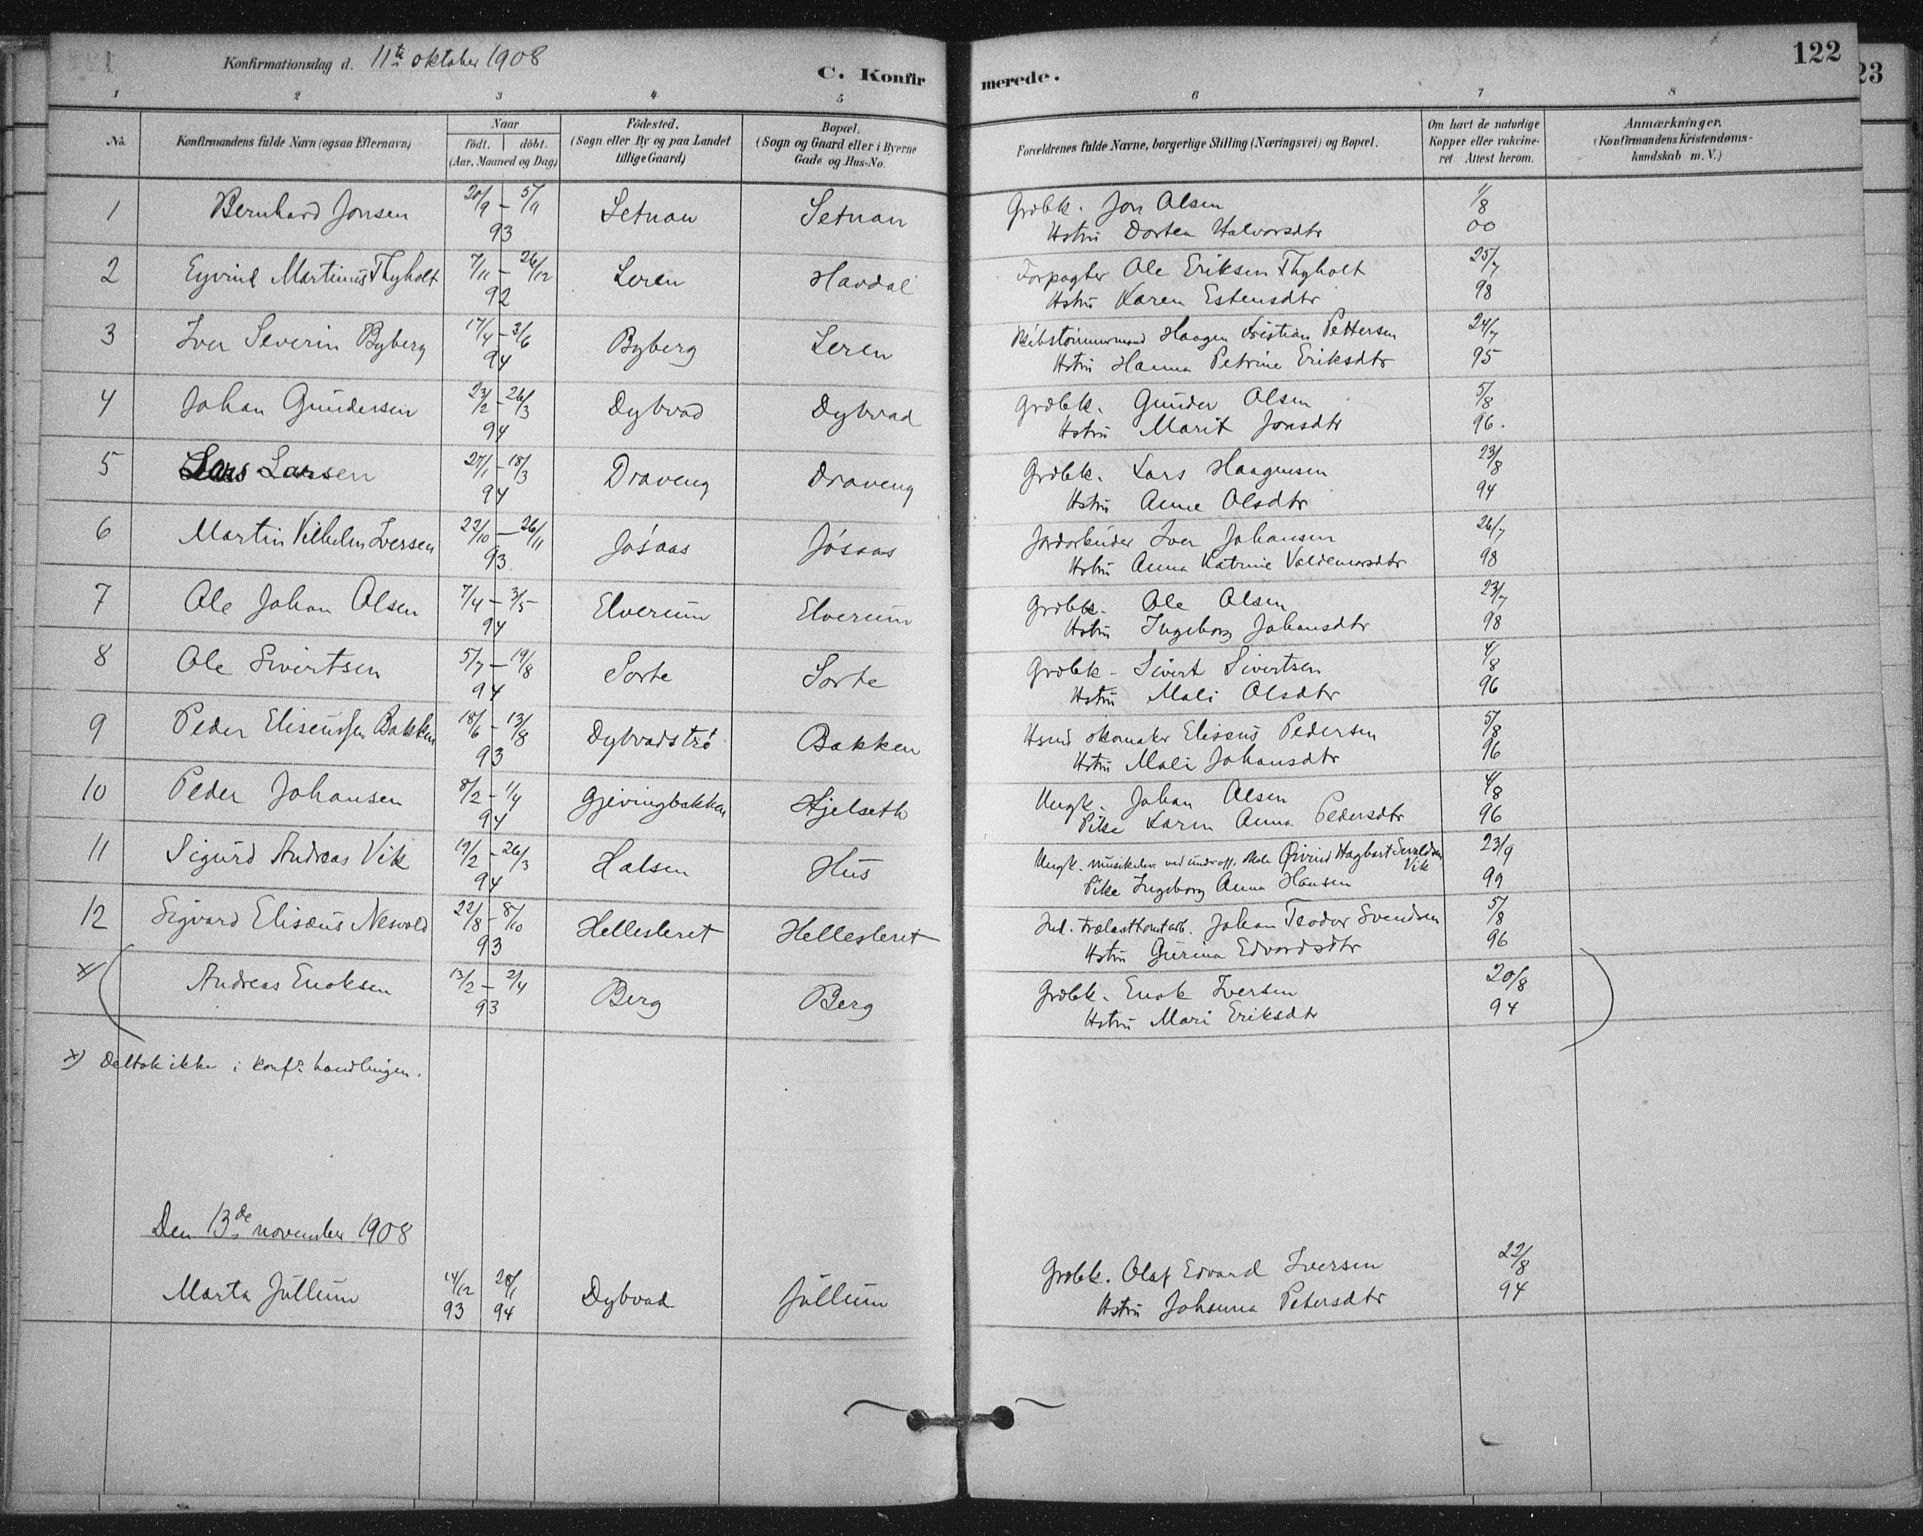 Konfirmationsdag d. 11te oktober 1908
C. Konfirmerede.
122
23
1 2 3 4 5 6 7 8
No.
Konfirmandens fulde Navn (ogsaa Efternavn)
Naar
födt. döbt.
(Aar, Maaned og Dag)
Födested.
(Sogn eller By og paa Landet
tillige Gaard)
Bopæl.
(Sogn og Gaard eller i Byerne
Gade og Hus-No.
Forældrenes fulde Navne, borgerlige Stilling (Næringsvei) og Bopæl.
Om havt de naturlige
Kopper eller vakcine-
ret. Attest herom.
Anmærkninger.
(Konfirmandens Kristendoms-
kundskab m. V.)
1 Bernhard Jonsen 20/9 – 5/11 Setnan Setnan Grdbk. Jon Olsen 1/8
93 Hstru Dortea Halvorsdtr 00
2 Eyvind Martinus Thyholt 7/11 – 26/12 Leren Havdal Forpagter Ole Eriksen Thyholt 25/7
92 Hstru Karen Estensdtr 98
3 Iver Severin Byberg 17/4 – 3/6 Byberg Leren Skibstömmermand Haagen Kristian Pettersen 24/7
94 Hstru Hanna Petrine Eriksdtr 95
4 Johan Gundersen 23/2 – 26/3 Dybvad Dybvad Grdbk. Gunder Olsen 5/8
94 Hstru Marit Jonsdtr 96.
5 Lars Larsen 27/1 – 18/3 Draveng Draveng Grdbk. Lars Haagensen 23/8
94 Hstru Anne Olsdtr 94
6 Martin Vilhelm Iversen 22/10 – 26/11 Jøsaas Jøsaas Jordarbeider Iver Johansen 26/7
93. Hstru Anna Katrine Valdemarsdtr 98
7 Ole Johan Olsen 7/4 – 3/5 Elverum Elverum Grdbk. Ole Olsen 23/7
94 Hstru Ingeborg Johansdtr 98
8 Ole Sivertsen 5/7 – 19/8 Sorte Sorte Grdbk. Sivert Sivertsen 4/8
94 Hstru Mali Olsdtr 96
9 Peder Eliseussen Bakken 18/6 – 13/8 Dybvadstrø Bakken Hsmd skomaker Eliseus Pedersen 5/8
93 Hstru Mali Johansdtr 96
10 Peder Johansen 8/2 – 1/4 Gjevingbakken Hjelseth Ungk. Johan Olsen 4/8
94 Pike Karen Anna Pedersdtr 96
11 Sigurd Andreas Vik 19/2 – 26/3 Halsen Hus Ungk. musikelev ved underoff. skole Øivind Hagbart Sevaldsen Vik 23/9
94 Pike Ingeborg Anna Hansen 99
12 Sigvard Eliseus Nesvold 22/8 – 8/10 Hellesleret Hellesleret Ind. Trælasttomtarb. Johan Teodor Svendsen 5/8
93 Hstru Gurina Edvardsdtr 96
x) ( Andreas Enoksen 13/2 – 2/4 Berg Berg Grdbk. Enok Iversen 20/8 )
93 Hstru Mari Eriksdtr 94
x) Deltok ikke i konf. handlingen.
Den 13de november 1908
Marta Jullum 14/12 28/1 Dybvad Jullum Grdbk. Olaf Edvard Iversen 22/8
93 94 Hstru Johanna Petersdtr 94